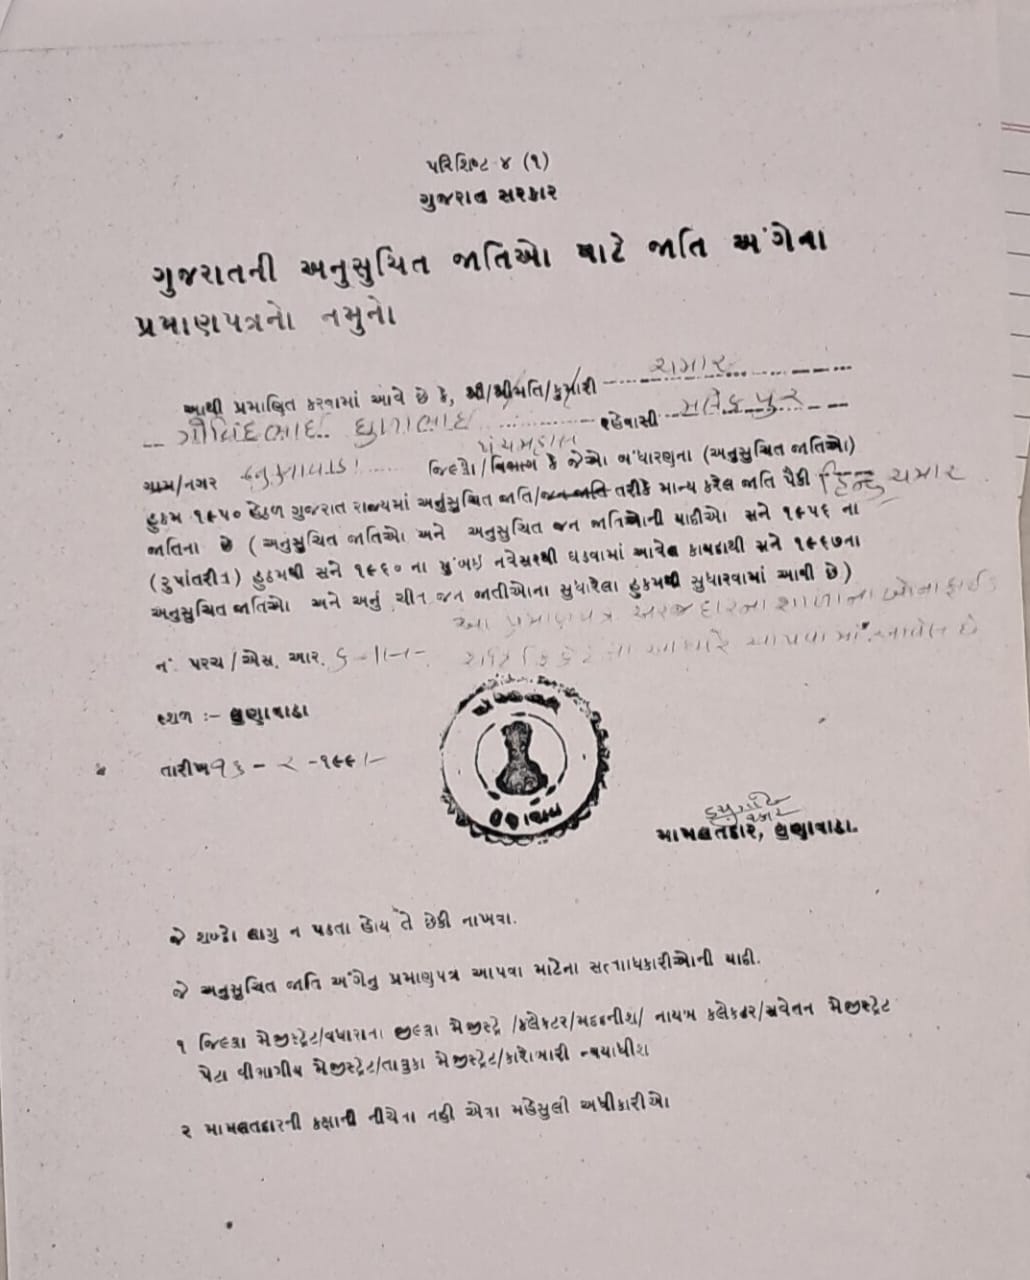 પરિશિષ્ટ ૪ (૧)
ગુજરાત સરકાર
ગુજરાતની અનુસુચિત જાતિઓ માટે જાતિ અંગેના
પ્રમાણપત્રનો નમુનો
ચમાર
આથી પ્રમાણિત કરવામાં આવે છે કે, શ્રી/શ્રીમતિ/કુમારી
ગોવિંદભાઈ ધુળાભાઈ રહેવાસી મલેકપુર
પંચમહાલ
ગ્રામ/નગર જિલ્લો/વિભાગ કે જેઓ બંધારણના (અનુસુચિત જાતિઓ)
હુકમ ૧૯૫૦ હેઠળ ગુજરાત રાજ્યમાં અનુંસુચિત જાતિ/જન જાતિ તરીકે માન્ય કરેલ જાતિ પૈકી હિન્દુ ચમાર
જાતિના છે (અનુસુચિત જાતિઓ અને અનુસુચિત જન જાતિઓની યાદીઓ સને ૧૯૫૬ ના
(રુપાંતરીત્ર) હુકમથી સને ૧૯૬૦ ના મુંબઇ નવેસરથી ઘડવામાં આવેલ કાયદાથી સને ૧૯૬૭ના
અનુસુચિત જાતિઓ અને અનુ ચીત જન જાતીઓના સુધારેલા હુકમથી સુધારવામાં આવી છે)
આ પ્રમાણપત્ર અરજદારના શાળાના બોનાફાઈડ
નં. પરચ/એસ. આર. સર્ટીફિકેટના આધારે આપવામાં આવેલ છે
સ્થળ :- લુણાવાડા
તારીખ ૧૬ - ૨ - ૧૯૯
મામલતદાર, લુણાવાડા.
જે શબ્દો લાગુ ન પડતા હોય તે છેકી નાખવા.
જે અનુસુચિત જાતિ અંગેનુ પ્રમાણપત્ર આપવા માટેના સત્તાધિકારીઓની યાદી.
૧ જિલ્લા મેજીસ્ટ્રેટ/વધારાના જીલ્લા મેજીસ્ટ્રે /કલેકટર/મદદનીશ/ નાયબ કલેકટર/સવેતન મેજીસ્ટ્રેટ
પેટા વીભાગીય મેજીસ્ટ્રેટ/તાલુકા મેજીસ્ટ્રેટ/કારોબારી ન્યયાધીશ
૨ મામલતદારની કક્ષાની નીચેના નહી એવા મહેસુલી અધીકારીઓ